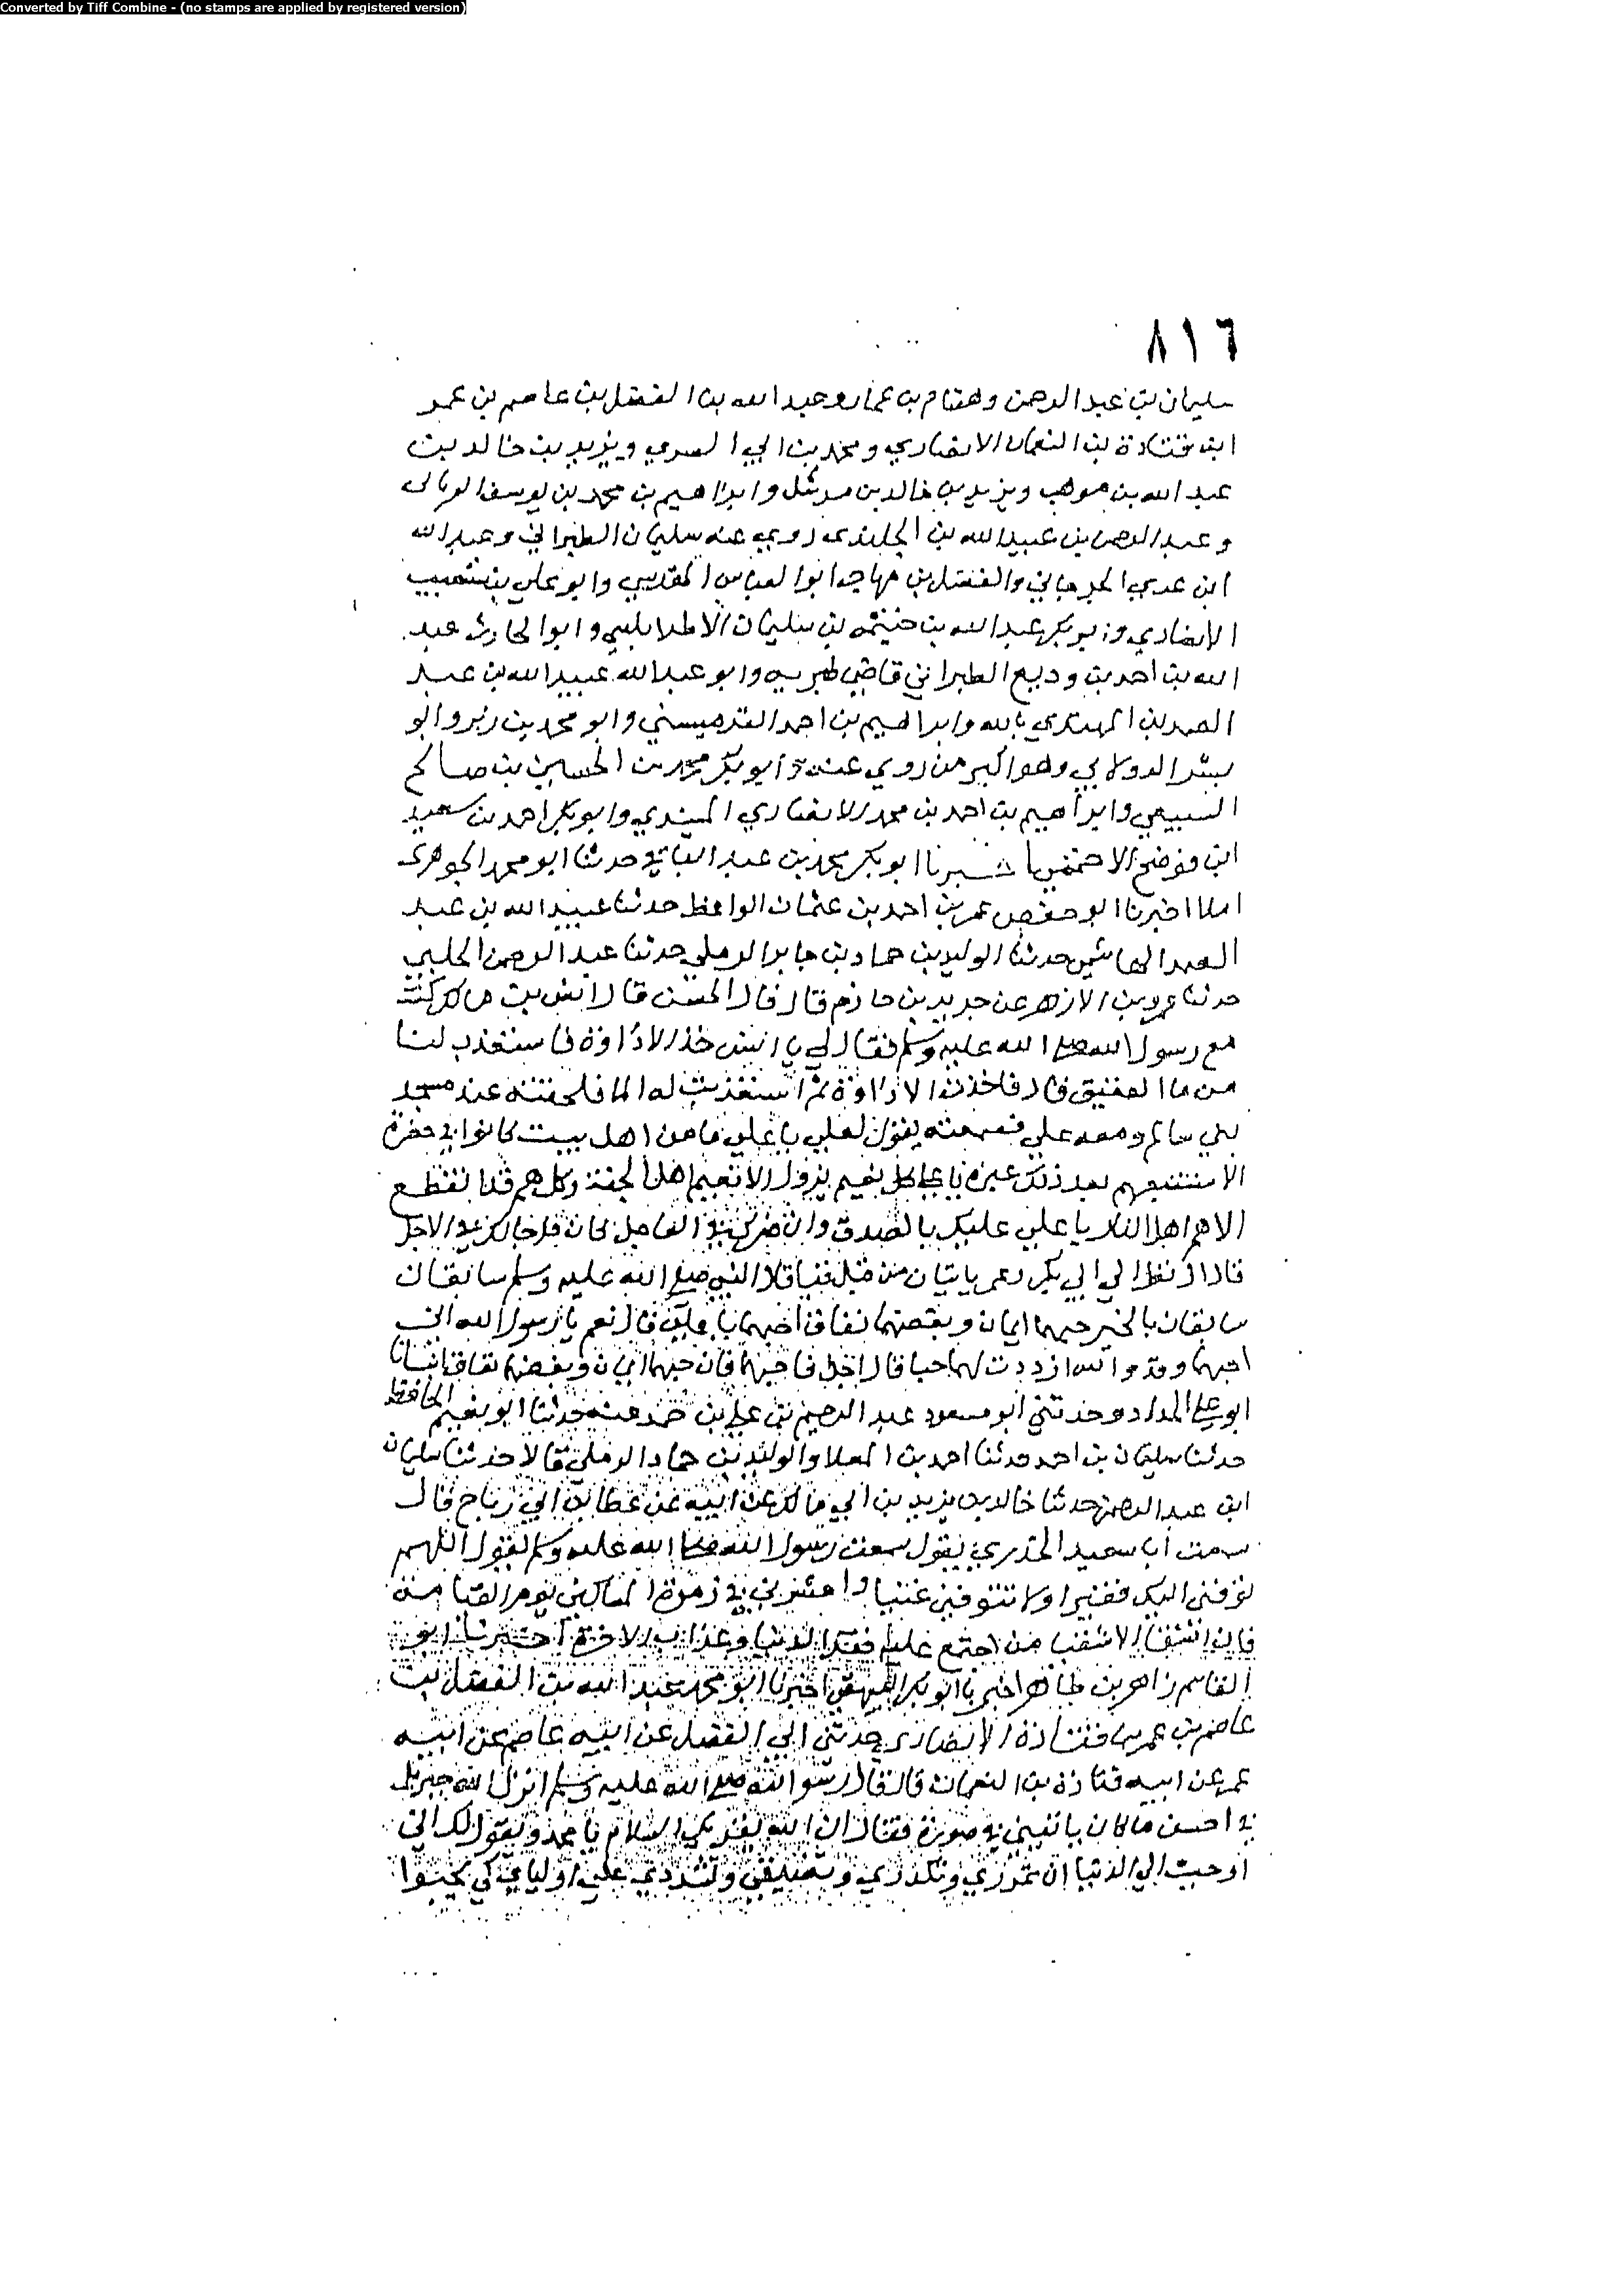 Converted by Tiff Combine - (no stamps are applied by registered version)
٨١٦
سليمان بن عبد الرحمن وهشام بن عمار وعبد الله بن الفضل بن عاصم بن عمر
ابن قتادة بن النعمان الانصاري ومحمد بن ابي السري ويزيد بن خالد بن
عبد الله بن موهب ويزيد بن خالد بن مرشل وابراهيم بن محمد بن يوسف الفريابي
وعبد الرحمن بن عبيد الله بن الجلندي روي عنه سليمان الطبراني وعبد الله
ابن عدي الجرجاني والفضل بن مهاجر ابو العباس المقدسي وابو علي بن شعيب
الانصاري وابو بكر عبد الله بن خيثمه بن سليمان الاطرابلسي وابو الحارث عبد
الله بن احمد بن وديع الطبراني قاضي طبريه وابو عبد الله عبيد الله بن عبد
الصمد بن المهتدي بالله وابراهيم بن احمد القرميسني وابو محمد بن زبر وابو
بشر الدولابي وهو اكبر من روي عنه وابو بكر محمد بن الحسين بن صالح
السبيعي وابراهيم بن احمد بن محمد الانصاري الميندي وابو بكر احمد بن سعيد
ابن فرضخ الاخميمي اخبرنا ابو بكر محمد بن عبد الباقي حدثنا ابو محمد الجوهري
املا اخبرنا ابو حفص عمر بن احمد بن عثمان الواعظ حدثنا عبيد الله بن عبد
الصمد الهاشمي حدثنا الوليد بن حماد بن جابر الرملي حدثنا عبد الرحمن الحلبي
حدثنا عمرو بن الازهر عن جرير بن حازم قال قال الحسن قال انس بن مالك كنت
مع رسول الله صلى الله عليه وسلم فقال لي يا انس خذ الاداوة فاستعذب لنا
من ما العقيق قال فاخذت الاداوة ثم استعذبت له الما فلحقته عند مسجد
بني سالم ومعه علي فسمعته يقول لعلي يا علي ما من اهل بيت كانوا في حبرة
الا استتبعهم بعد ذلك عبرة يا علي كل نعيم يزول الا نعيم اهل الجنة وكل هم قد ينقطع
الا هم اهل النار يا علي عليك بالصدق وان ضرك في العاجل كان فرجا لك في الاجل
قال اذ نظر الي ابي بكر وعمر ياتيان من قبل قبا قال النبي صلى الله عليه وسلم سابقان
سابقان بالخير حبهما ايمان وبغضهما نفاق احبهما يا علي قال نعم يا رسول الله اني
احبهما وقد والله ازددت لهما حبا قال اجل فاحبهما فان حبهما ايمان وبغضهما نفاق انبانا
ابو علي الحداد وحدثني ابو مسعود عبد الرحيم بن علي بن حمد عنه حدثنا ابو نعيم الحافظ
حدثنا سليمان بن احمد حدثنا احمد بن المعلا والوليد بن حماد الرملي قالا حدثنا سليمان
ابن عبد الرحمن حدثنا خالد بن يزيد بن ابي مالك عن ابيه عن عطا بن ابي رباح قال
سمعت ابا سعيد الخدري يقول سمعت رسول الله صلى الله عليه وسلم يقول اللهم
توفني اليك فقيرا ولا تتوفني غنيا واحشرني في زمرة المساكين يوم القيامة
فان اشقا الاشقيا من اجتمع عليه فقر الدنيا وعذاب الاخرة اخبرنا ابو
القاسم زاهر بن طاهر اخبرنا ابو بكر البيهقي اخبرنا ابو محمد عبد الله بن الفضل بن
عاصم بن عمر بن قتادة الانصاري حدثني ابي الفضل عن ابيه عاصم عن ابيه
عمر عن ابيه قتادة بن النعمان قال قال رسول الله صلى الله عليه وسلم انزل الله جبريل
في احسن ما كان ياتيني في صورة فقال ان الله يقريك السلام يا محمد ويقول لك اني
اوحيت الي الدنيا ان تمرري وتكدري وتضيقي وتشددي علي اوليايي كي يحبوا